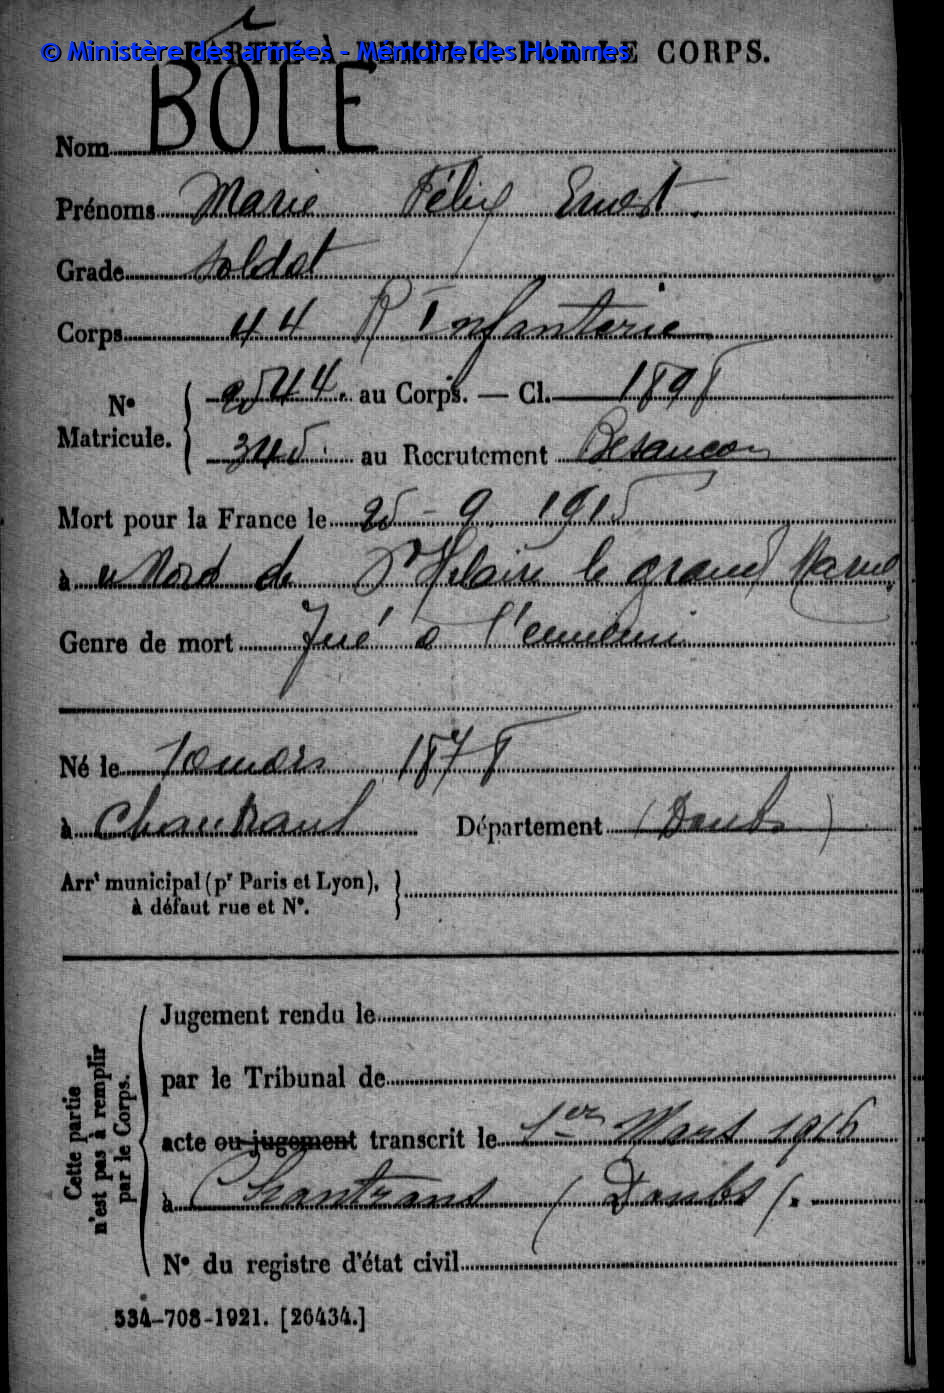 © Ministère des armées - Mémoire des Hommes
PARTIE À REMPLIR PAR LE CORPS.
Nom BÔLE
Prénoms Marie Félix Ernest.
Grade soldat
Corps 44 R Infanterie
N° Matricule. 2544. au Corps. — Cl. 1898
345. au Recrutement Besançon
Mort pour la France le 25-9 1915
à u Nord de St Hilaire le grand Marne.
Genre de mort Tué à l'ennemi
Né le 10 mars 1878
à Chantrans Département (Doubs)
Arrt municipal (pr Paris et Lyon),
à défaut rue et N°.
Cette partie
n'est pas à remplir
par le Corps.
Jugement rendu le
par le Tribunal de
acte ou jugement transcrit le 1er Mars 1916
à Chantrans (Doubs).
N° du registre d'état civil
534-708-1921. [26434.]